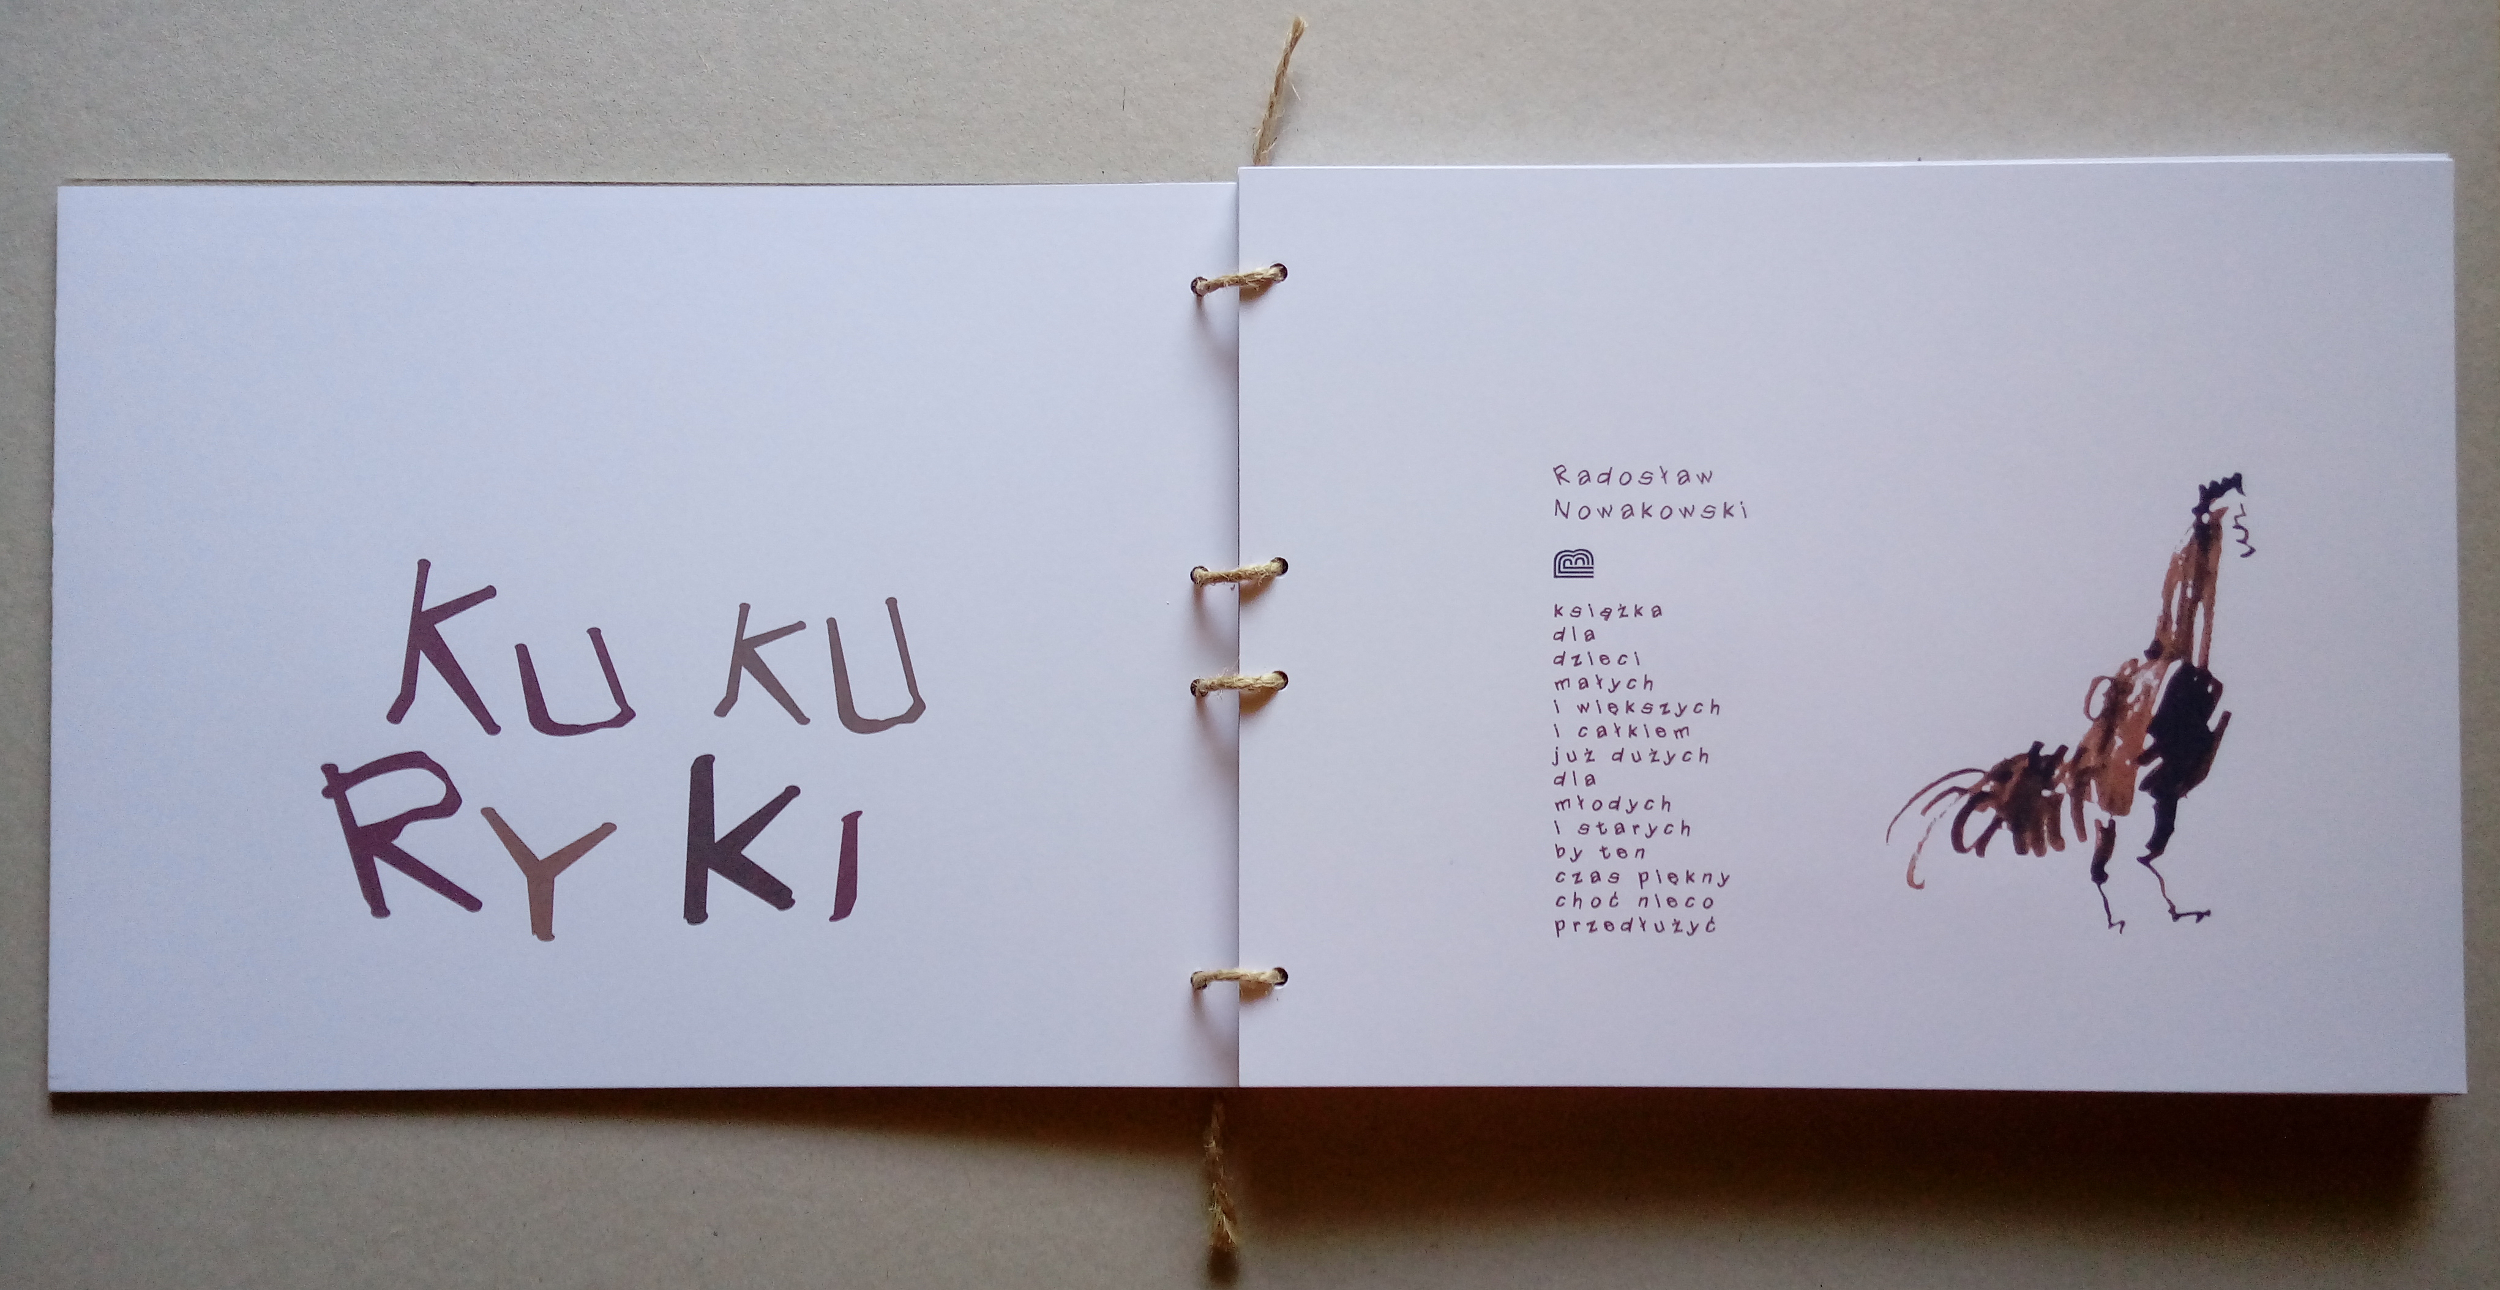 KU KU
RY KI
Radosław
Nowakowski
książka
dla
dzieci
małych
i większych
i całkiem
już dużych
dla
młodych
i starych
by ten
czas piękny
choć nieco
przedłużyć